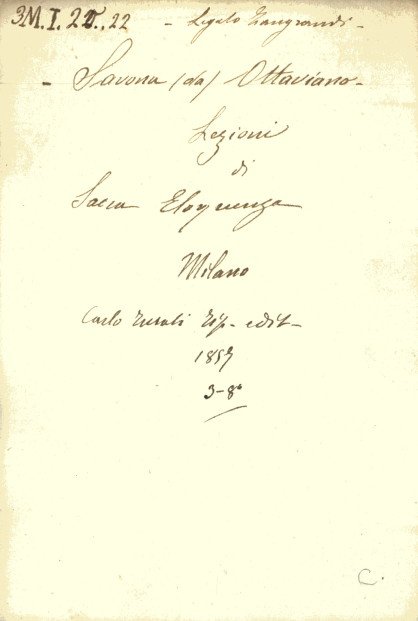 3M.I.22.,22 - Legato Zangrandi -
- Savona (da) Ottaviano -
Lezioni
di
Sacra Eloquenza
Milano
Carlo Turati Tip- edit-
1857
3-8°
C.